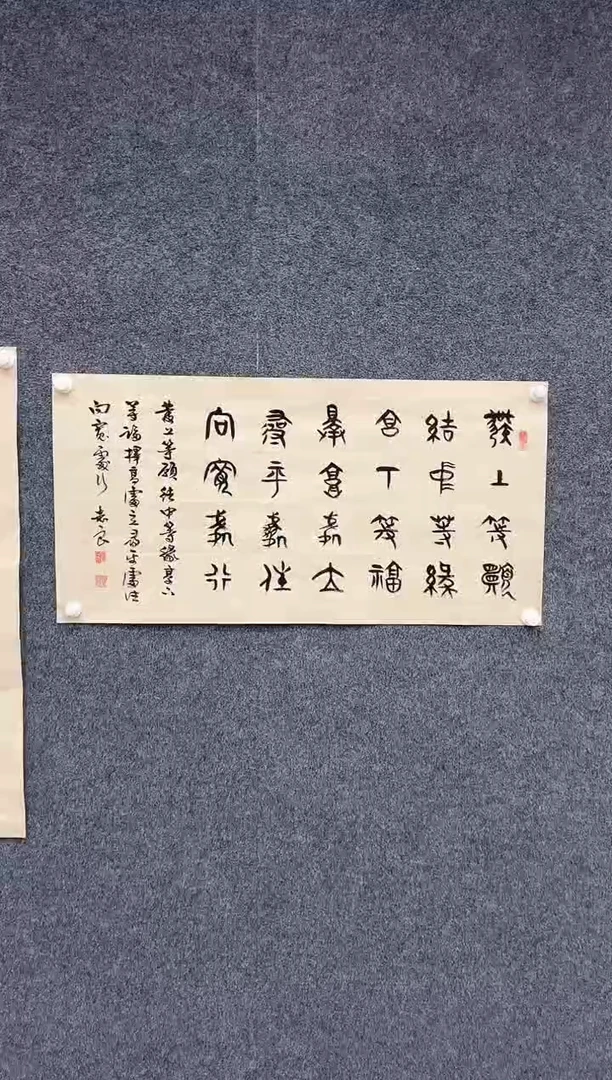 發上等願
結中等緣
享下等福
擇高處立
尋平處住
向寬處行
發上等願結中等緣享下
等福擇高處立尋平處住
向寬處行